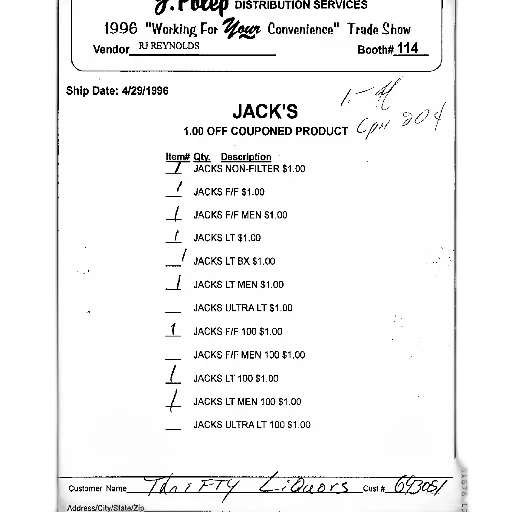 J. Polep DISTRIBUTION SERVICES
1996 "Working For Your Convenience" Trade Show
Vendor RJ REYNOLDS Booth# 114
Ship Date: 4/29/1996
JACK'S
1.00 OFF COUPONED PRODUCT
Cpn 80¢
Item# Qty. Description
1 JACKS NON-FILTER $1.00
1 JACKS F/F $1.00
1 JACKS F/F MEN $1.00
1 JACKS LT $1.00
1 JACKS LT BX $1.00
1 JACKS LT MEN $1.00
JACKS ULTRA LT $1.00
1 JACKS F/F 100 $1.00
JACKS F/F MEN 100 $1.00
1 JACKS LT 100 $1.00
1 JACKS LT MEN 100 $1.00
JACKS ULTRA LT 100 $1.00
Customer Name THRIFTY LIQUORS Cust # 693051
Address/City/State/Zip